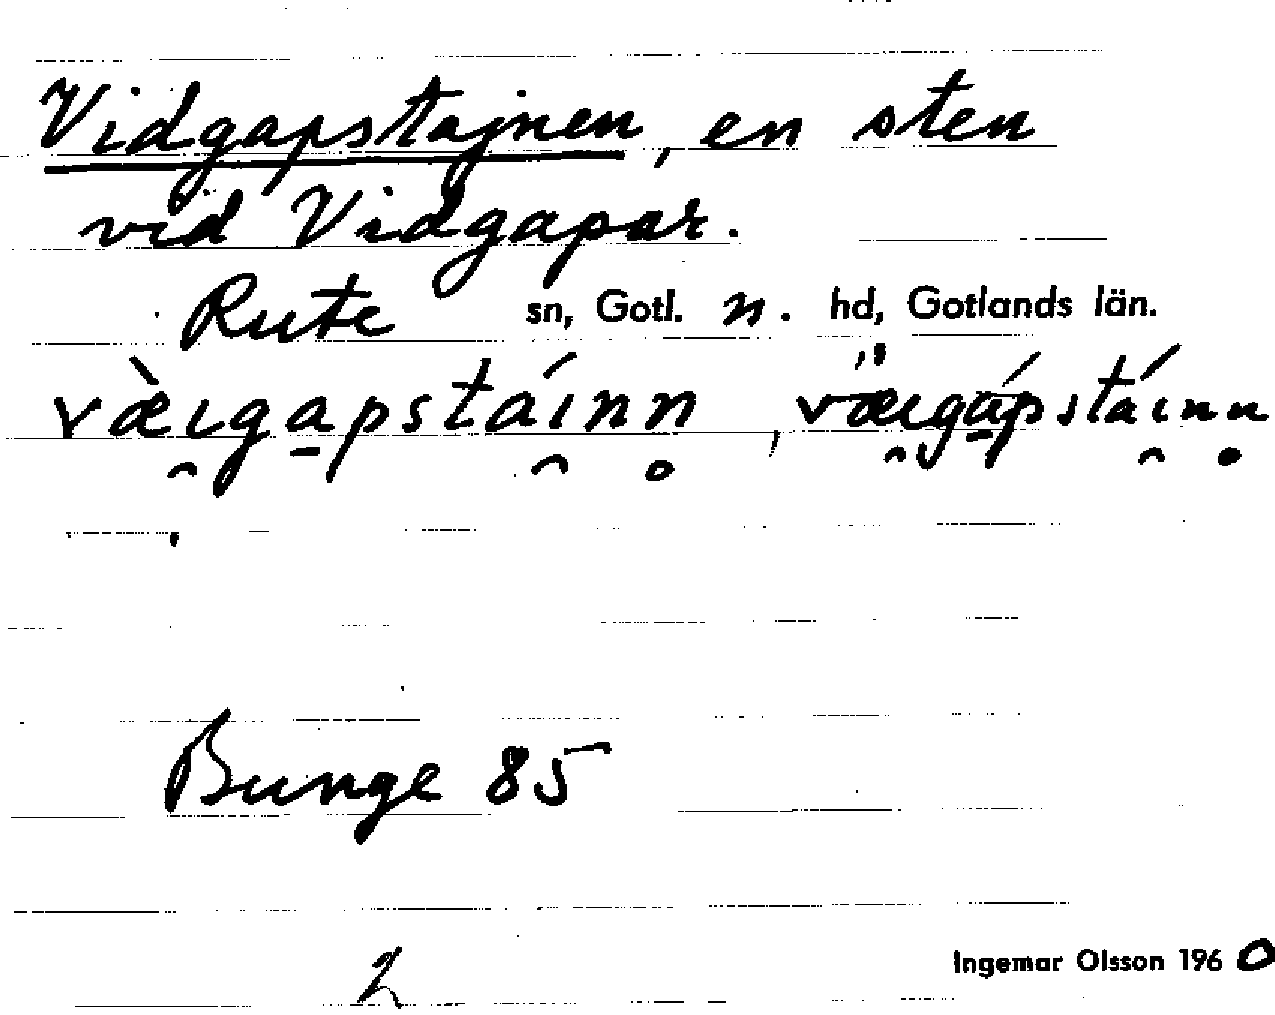 Vidgapstajnen, en sten
vid Vidgapar.
Rute sn, Gotl. n. hd, Gotlands län.
væ̀i̯ga̱pstái̯nn̥, væ̋i̯gá̱pstái̯nn̥
Bunge 85
2
Ingemar Olsson 1960